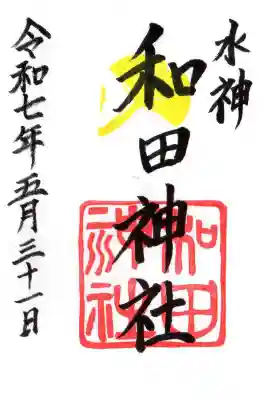 水神
和田神社
和田神社
令和七年五月三十一日